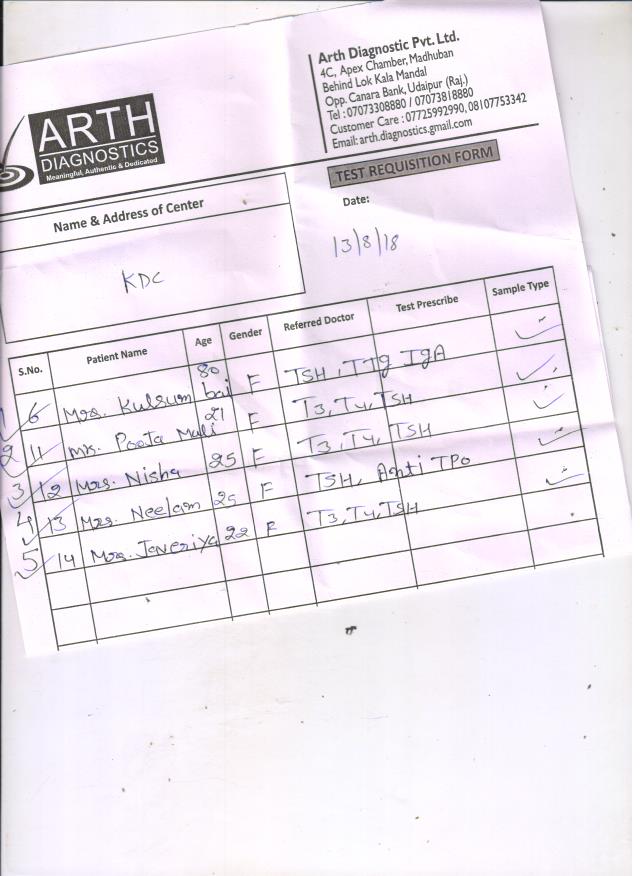 ARTH
DIAGNOSTICS
Meaningful, Authentic & Dedicated
Arth Diagnostic Pvt. Ltd.
4C, Apex Chamber, Madhuban
Behind Lok Kala Mandal
Opp. Canara Bank, Udaipur (Raj.)
Tel : 07073308880 / 07073818880
Customer Care : 07725992990, 08107753342
Email: arth.diagnostics.gmail.com
TEST REQUISITION FORM
Name & Address of Center
Date:
KDC
13/8/18
S.No. Patient Name Age Gender Referred Doctor Test Prescribe Sample Type
1 6 Mrs. Kulsum bai 80 F TSH, TTg IgA
2 11 Mrs. Pooja Mali 21 F T3, T4, TSH
3 12 Mrs. Nisha 25 F T3, T4, TSH
4 13 Mrs. Neelam 25 F TSH, Anti TPO
5 14 Mrs. Javeriya 22 F T3, T4, TSH